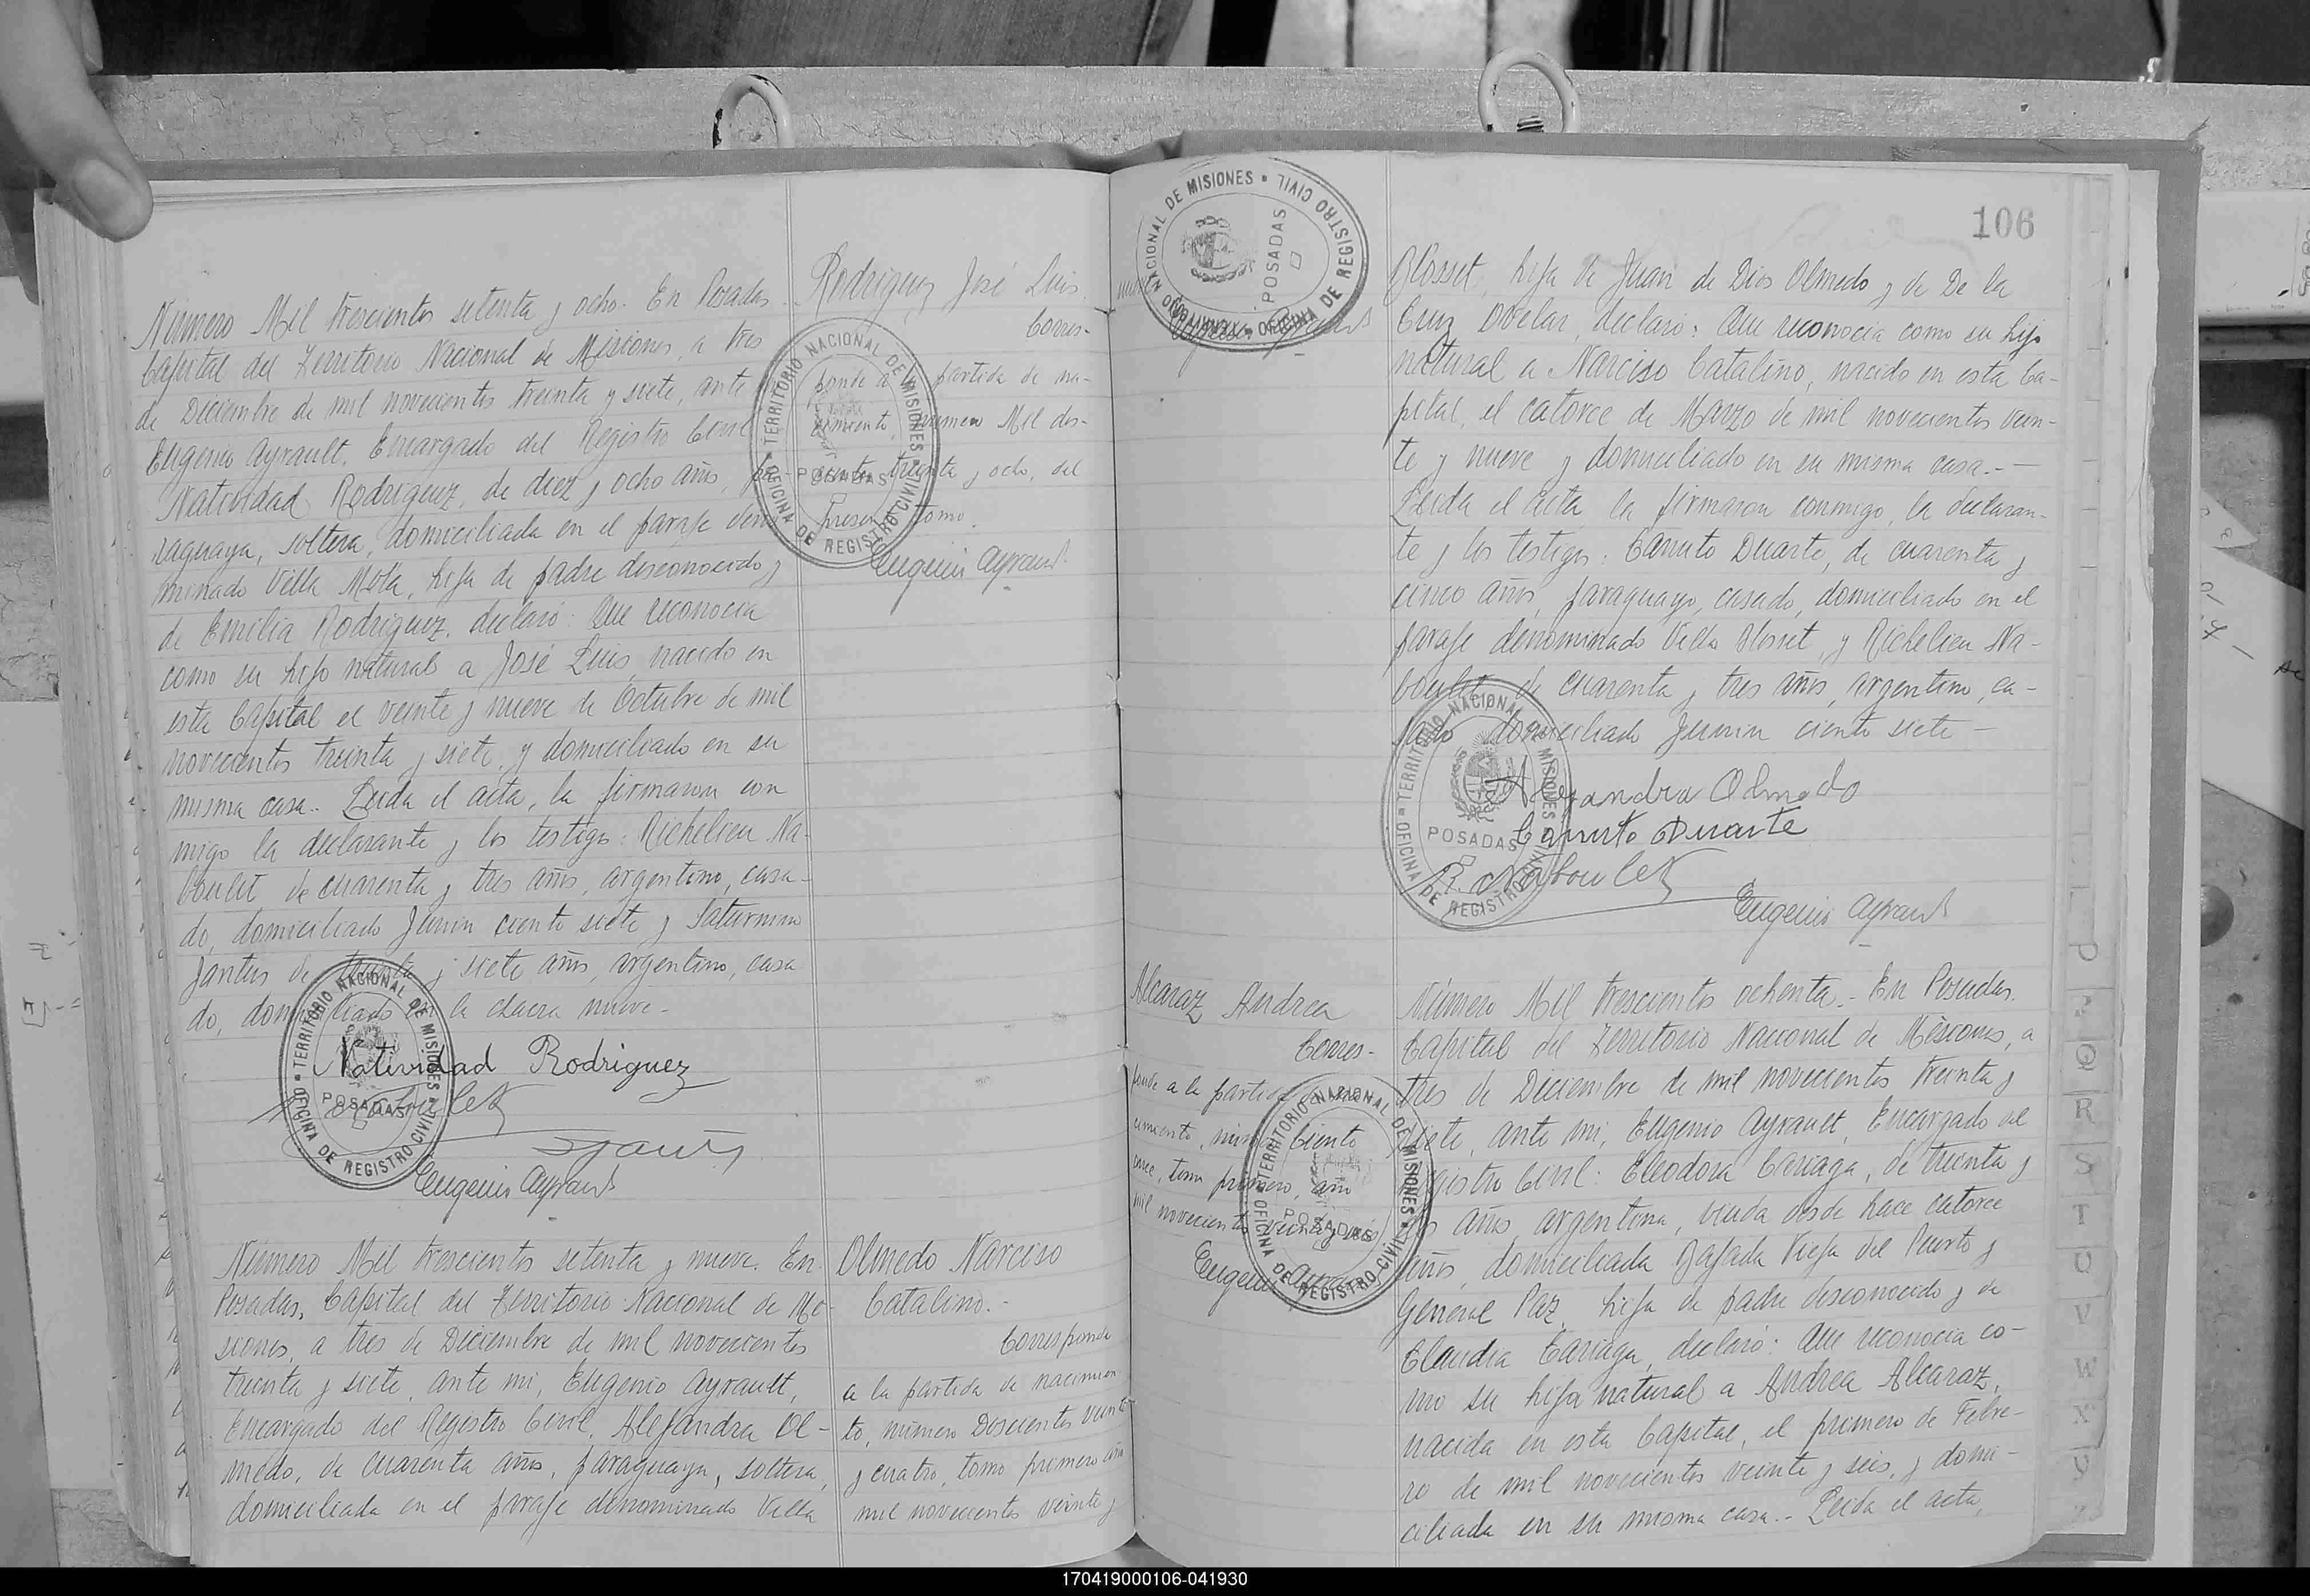 Número Mil trescientos setenta y ocho. En Posadas
Capital del Territorio Nacional de Misiones, a tres
de Diciembre de mil novecientos treinta y siete, ante
Eugenio Ayrault, Encargado del Registro Civil
Natividad Rodriguez, de diez y ocho años, pa-
raguaya, soltera, domiciliada en el paraje deno
minado Villa Mota, hija de padre desconocido y
de Emilia Rodriguez, declaró: Que reconocia
como su hijo natural a José Luis, nacido en
esta Capital el veinte y nueve de Octubre de mil
novecientos treinta y siete, y domiciliado en su
misma casa.- Leida el acta, la firmaron con
migo la declarante y los testigos: Richelieu Na-
boulet de cuarenta y tres años, argentino, casa-
do, domiciliado Junin ciento siete y Saturnino
Santus de treinta y siete años, argentino, casa
do, domiciliado en la chacra nueve.-
Natividad Rodriguez
R. Naboulet
Eugenio Ayrault
TERRITORIO NACIONAL DE MISIONES
POSADAS
OFICINA DE REGISTRO CIVIL
Rodriguez José Luis
Corres-
ponde a partida de na-
cimiento, número Mil dos-
cientos treinta y ocho, del
presente tomo.
Eugenio Ayrault
TERRITORIO NACIONAL DE MISIONES
POSADAS
OFICINA DE REGISTRO CIVIL
Número Mil trescientos setenta y nueve. En
Posadas, Capital del Territorio Nacional de Mi-
siones, a tres de Diciembre de mil novecientos
treinta y siete, ante mi, Eugenio Ayrault,
Encargado del Registro Civil, Alejandra Ol-
medo, de cuarenta años, paraguaya, soltera,
domiciliada en el paraje denominado Villa
Olmedo Narciso
Catalino.-
Corresponde
a la partida de nacimien
to, número Doscientos veinte
y cuatro, tomo primero año
mil novecientos veinte y
nueve
Eugenio Ayrault
TERRITORIO NACIONAL DE MISIONES
POSADAS
OFICINA DE REGISTRO CIVIL
106
Blosset, hija de Juan de Dios Olmedo y de De la
Cruz Ovelar, declaró: Que reconocia como su hijo
natural a Narciso Catalino, nacido en esta Ca-
pital, el catorce de Marzo de mil novecientos vein-
te y nueve y domiciliado en su misma casa.-
Leida el acta la firmaron conmigo, la declaran-
te y los testigos: Canuto Duarte, de cuarenta y
cinco años, paraguayo, casado, domiciliado en el
paraje denominado Villa Blosset, y Richelieu Na-
boulet de cuarenta y tres años, argentino, ca-
sado domiciliado Junin ciento siete -
Alejandra Olmedo
Canuto Duarte
R. Naboulet
Eugenio Ayrault
TERRITORIO NACIONAL DE MISIONES
POSADAS
OFICINA DE REGISTRO CIVIL
Alcaraz Andrea
Corres-
ponde a la partida de na-
cimiento, número Ciento
once, tomo primero, año
mil novecientos veinte y seis
Eugenio Ayrault
TERRITORIO NACIONAL DE MISIONES
POSADAS
OFICINA DE REGISTRO CIVIL
Número Mil trescientos ochenta.- En Posadas
Capital del Territorio Nacional de Misiones, a
tres de Diciembre de mil novecientos treinta y
siete, ante mi, Eugenio Ayrault, Encargado del
Registro Civil: Eleodora Cariaga, de treinta y
años argentina, viuda desde hace catorce
años, domiciliada Bajada Vieja del Puerto y
General Paz, hija de padre desconocido y de
Claudia Cariaga, declaró: Que reconocia co-
mo su hija natural a Andrea Alcaraz,
nacida en esta Capital, el primero de Febre-
ro de mil novecientos veinte y seis, y domi-
ciliada en su misma casa.- Leida el acta,
O
P
Q
R
S
T
U
V
W
X
Y
Z
170419000106-041930